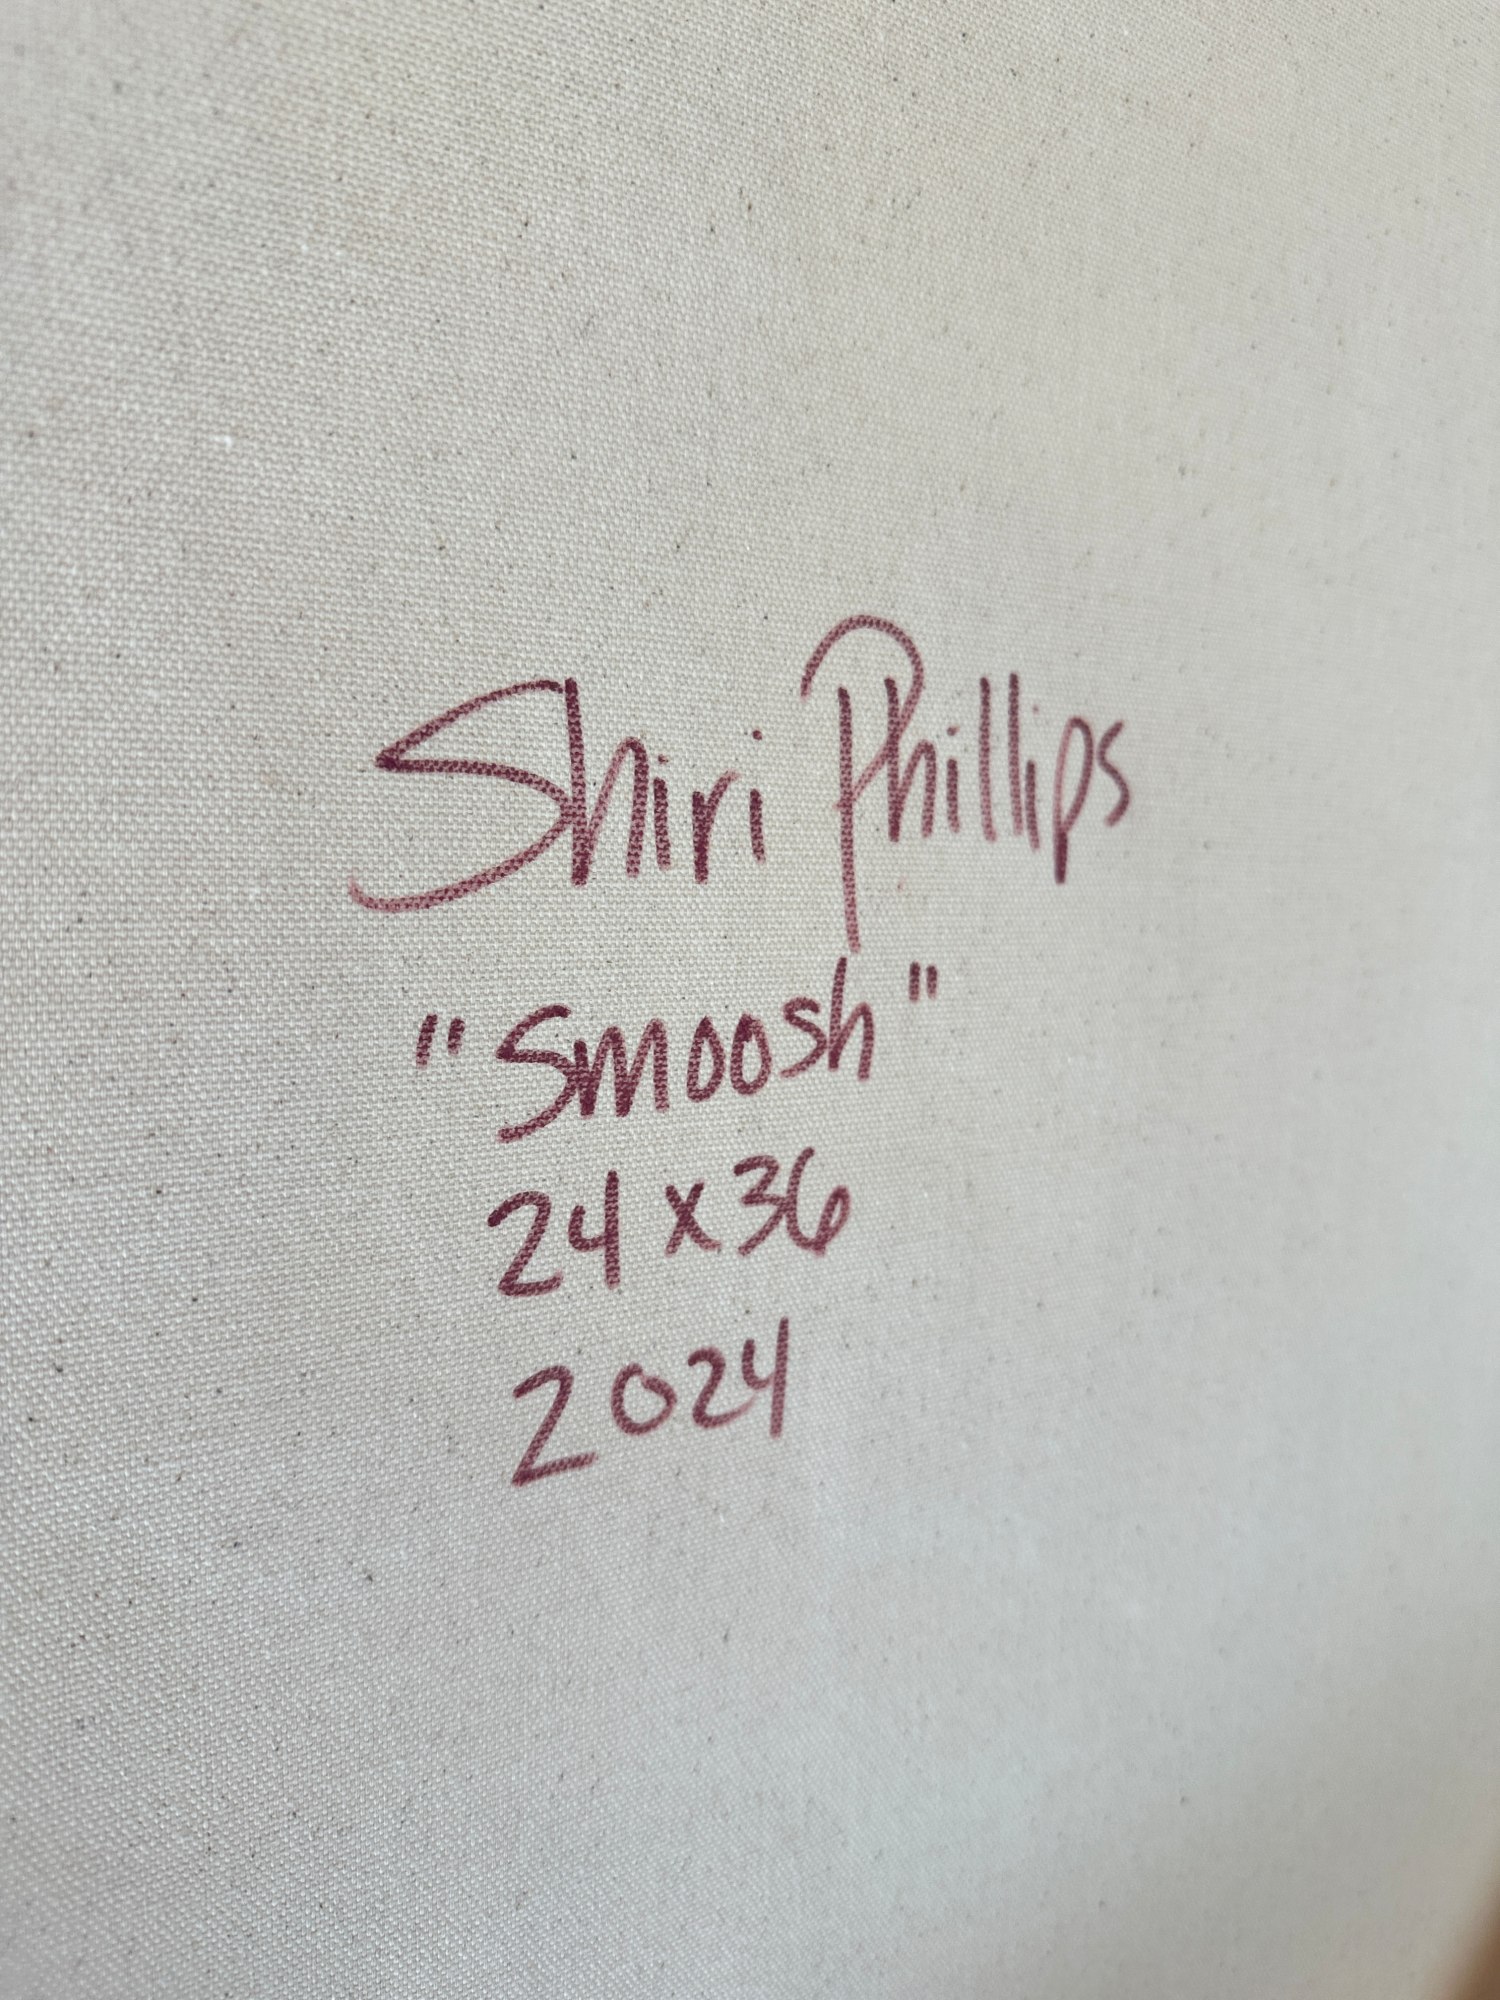 Shiri Phillips
"Smoosh"
24 x 36
2024